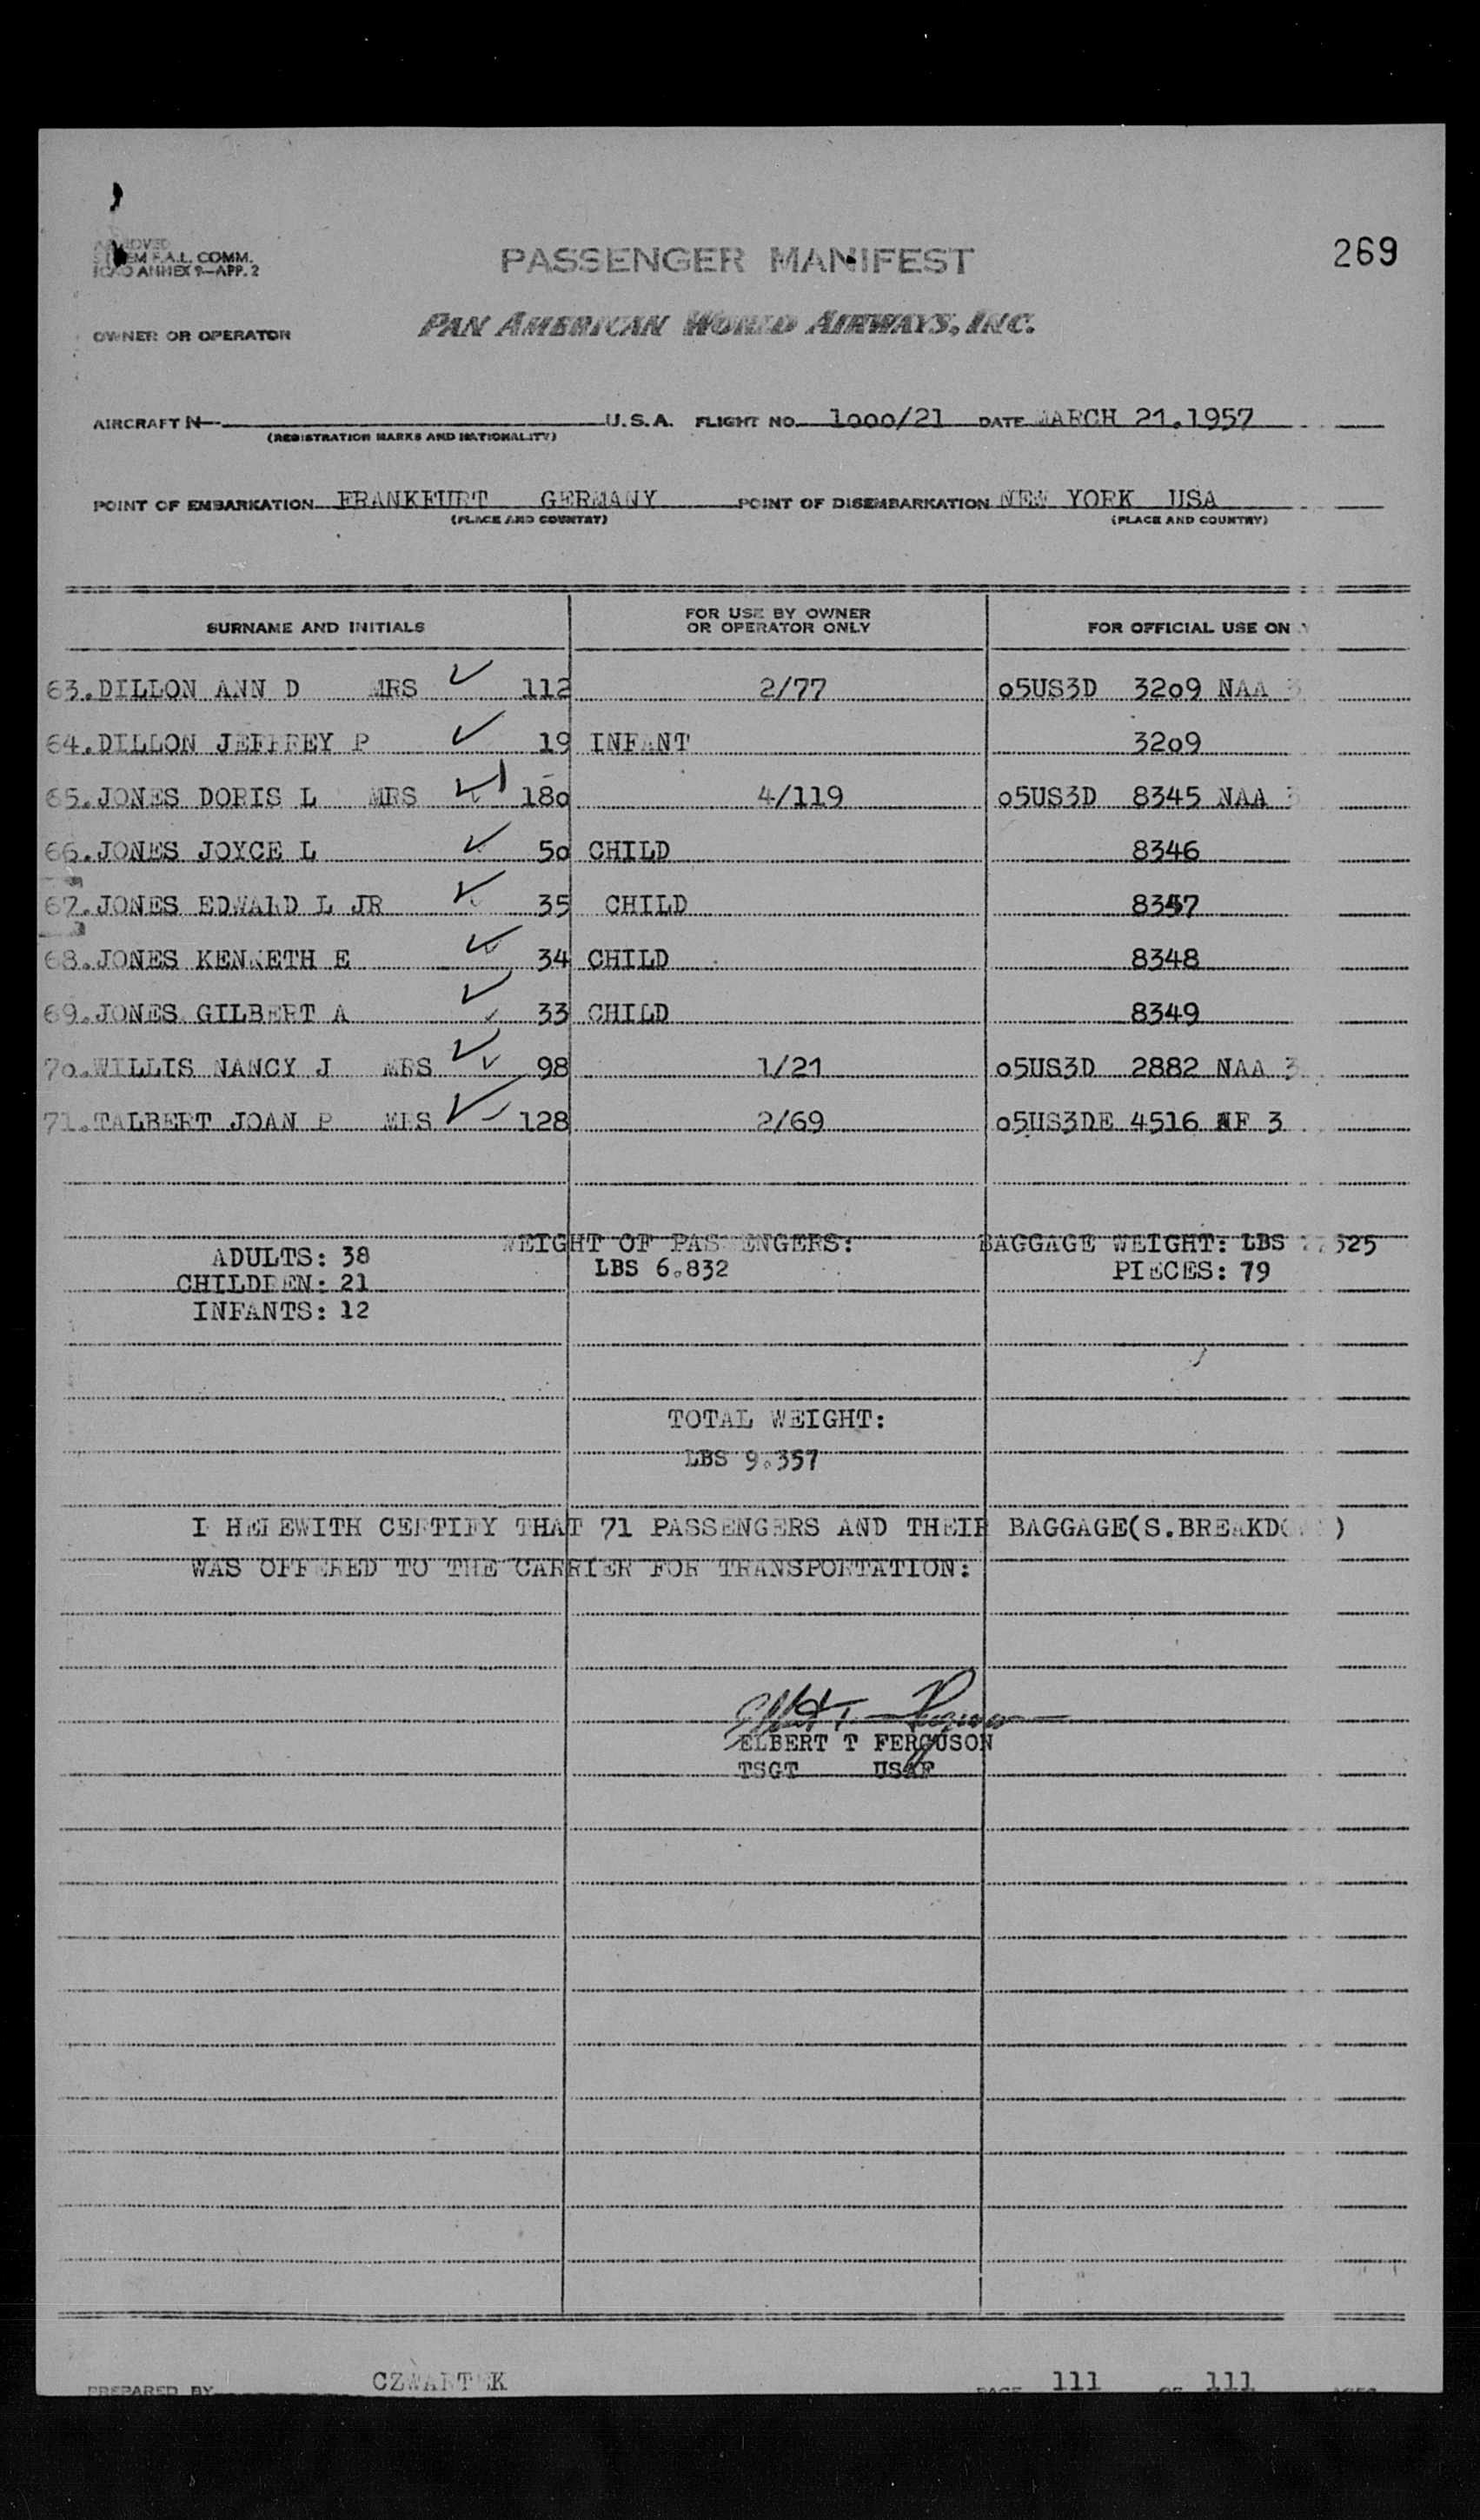 269
APPROVED
SYSTEM F.A.L. COMM.
ICAO ANNEX 9—APP. 2
PASSENGER MANIFEST
OWNER OR OPERATOR PAN AMERICAN WORLD AIRWAYS, INC.
AIRCRAFT N- U.S.A. FLIGHT NO. 1000/21 DATE MARCH 21.1957
(REGISTRATION MARKS AND NATIONALITY)
POINT OF EMBARKATION FRANKFURT GERMANY POINT OF DISEMBARKATION NEW YORK USA
(PLACE AND COUNTRY) (PLACE AND COUNTRY)
SURNAME AND INITIALS FOR USE BY OWNER OR OPERATOR ONLY FOR OFFICIAL USE ON
63.DILLON ANN D MRS 112 2/77 05US3D 3209 NAA 3
64.DILLON JEFFREY P 19 INFANT 3209
65.JONES DORIS L MRS 180 4/119 05US3D 8345 NAA 3
66.JONES JOYCE L 50 CHILD 8346
67.JONES EDWARD L JR 35 CHILD 8347
68.JONES KENNETH E 34 CHILD 8348
69.JONES GILBERT A 33 CHILD 8349
70.WILLIS NANCY J MRS 98 1/21 05US3D 2882 NAA 3
71.TALBERT JOAN P MRS 128 2/69 05US3DE 4516 AF 3
ADULTS: 38 WEIGHT OF PASSENGERS: BAGGAGE WEIGHT: LBS 525
CHILDREN: 21 LBS 6.832 PIECES: 79
INFANTS: 12
TOTAL WEIGHT:
LBS 9.357
I HEREWITH CERTIFY THAT 71 PASSENGERS AND THEIR BAGGAGE(S.BREAKDOWN)
WAS OFFERED TO THE CARRIER FOR TRANSPORTATION:
Elbert T. Ferguson
ELBERT T FERGUSON
TSGT USAF
PREPARED BY CZWARTEK PAGE 111 OF 111 PAGES